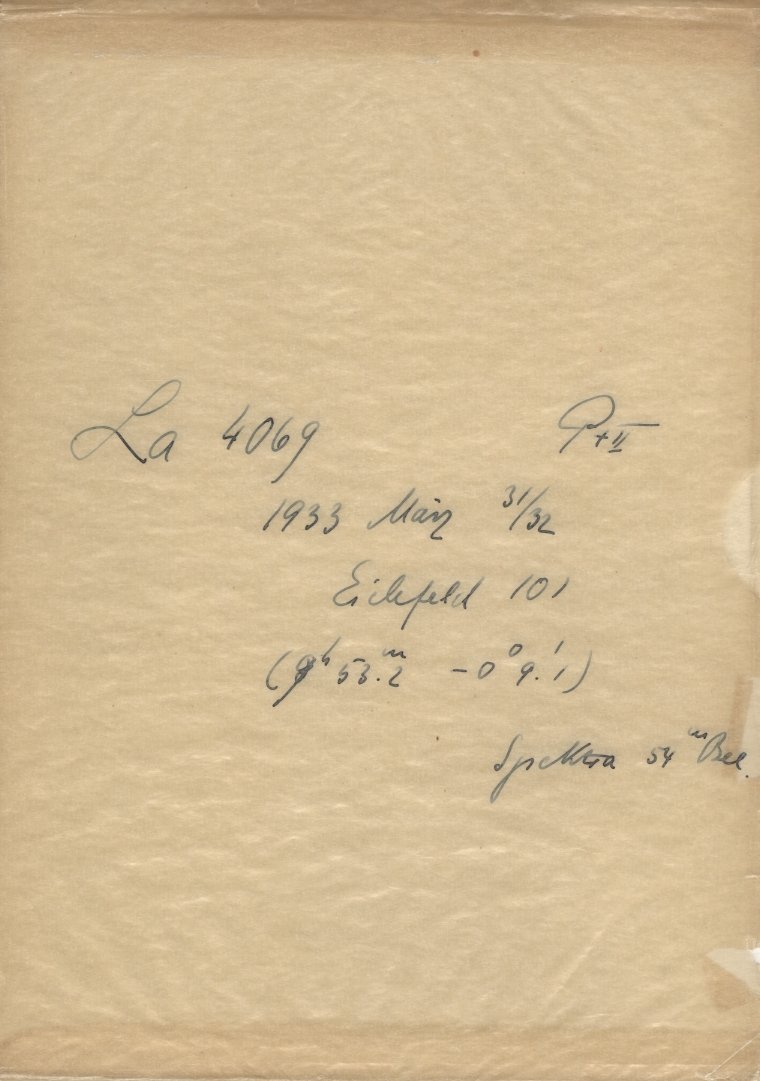 La 4069 P+II
1933 März 31/32
Eichfeld 101
(9h 53.m2 -0° 9.'1)
Spektra 54m Bel.